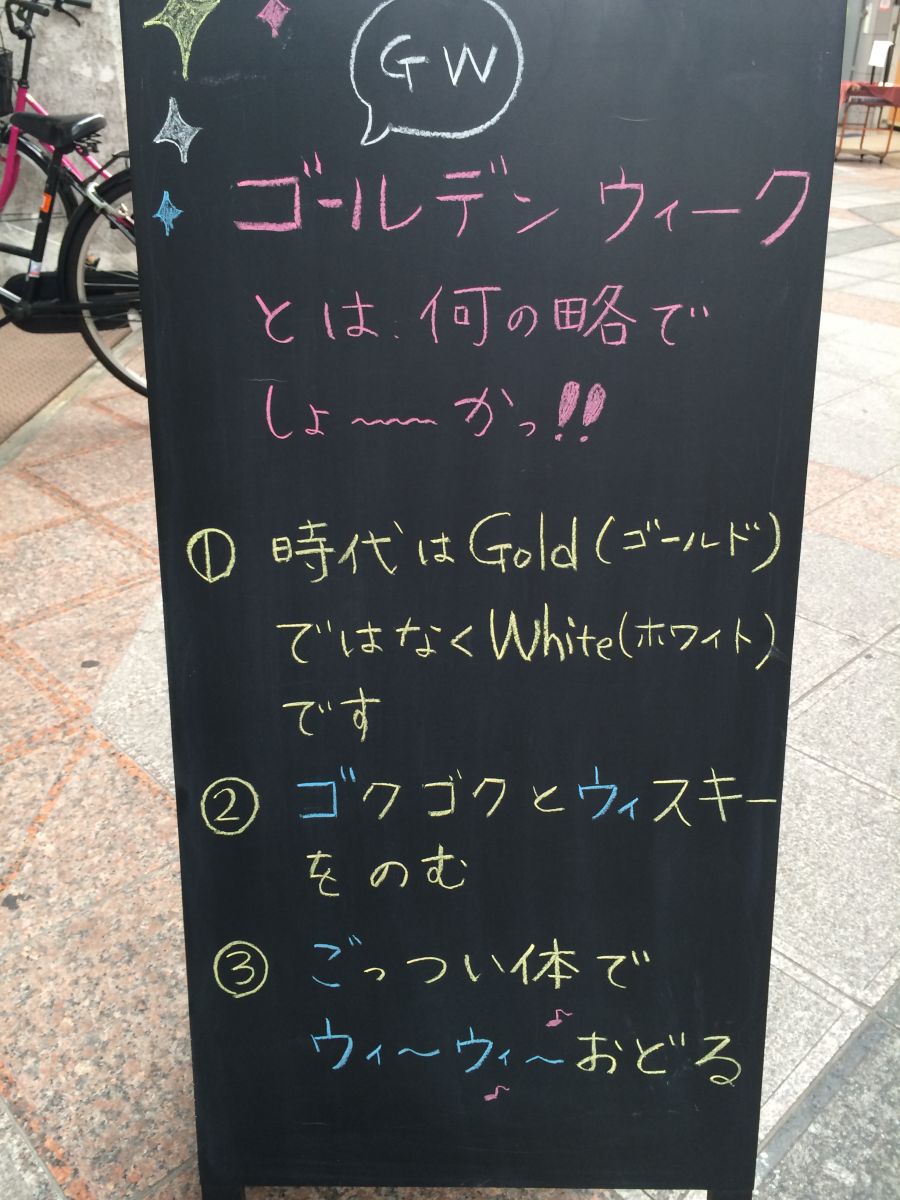 GW
ゴールデンウィーク
とは、何の略で
しょ〜〜かっ!!
① 時代はGold(ゴールド)
ではなくWhite(ホワイト)
です
② ゴクゴクとウィスキー
をのむ
③ ごっつい体で
ウィ〜ウィ〜おどる